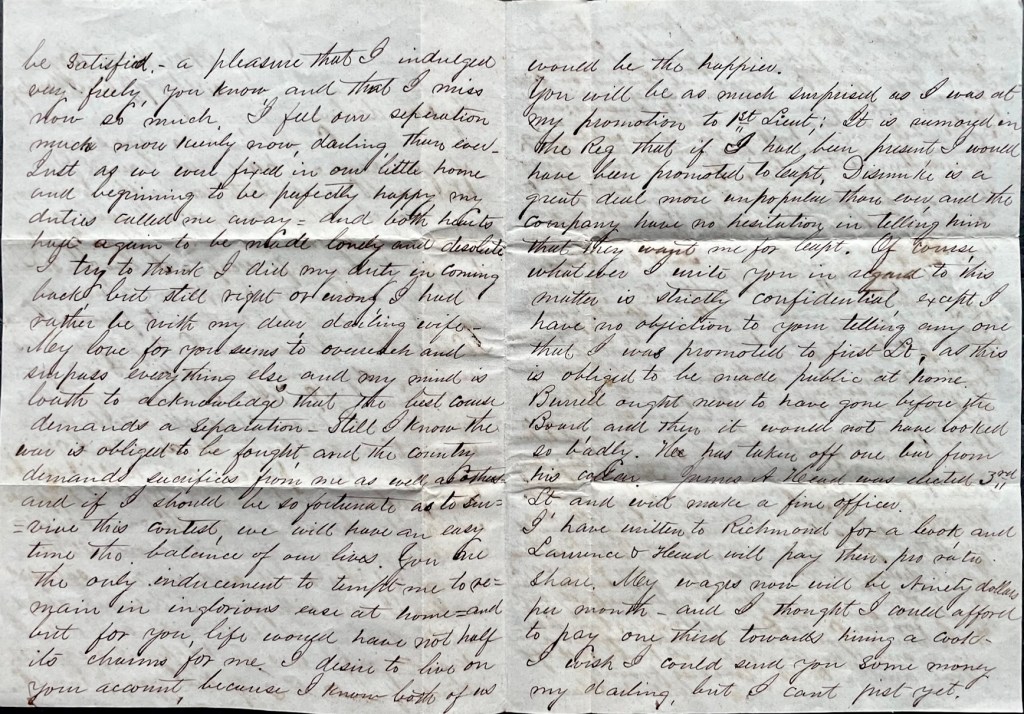 be satisfied. - a pleasure that I indulged
very freely, you know and that I miss
now so much. I feel our seperation
much more keenly now, darling, than ever-
Just as we were fixed in our little home
and beginning to be perfectly happy my
duties called me away = and both hearts
have again to be made lonely and desolate
I try to think I did my duty in coming
back but still right or wrong I had
rather be with my dear darling wife -
My love for you seems to overreach and
surpass everything else, and my mind is
loath to acknowledge that the best course
demands a separation - Still I know the
war is obliged to be fought, and the country
demands sacrifices from me as well as others-
and if I should be so fortunate as to sur-
=vive this contest, we will have an easy
time the balance of our lives. You are
the only inducement to tempt me to re=
main in inglorious ease at home = and
but for you, life would have not half
its charms for me. I desire to live on
your account, because I know both of us
would be the happier.
You will be as much surprised as I was at
my promotion to 1st Lieut; It is rumored in
the Reg that if I had been present I would
have been promoted to Capt. Dismuke is a
great deal more unpopular than ever and the
company have no hesitation in telling him
that they want me for Capt. Of course,
whatever I write you in regard to this
matter is strictly confidential, except I
have no objection to your telling any one
that I was promoted to first Lt, as this
is obliged to be made public at home.
Burrell ought never to have gone before the
Board and then it would not have looked
so badly. He has taken off one bar from
his collar. James A Head was elected 3rd
Lt and will make a fine officer.
I have written to Richmond for a cook and
Lawrence & Head will pay their pro ratio
share. My wages now will be Ninety dollars
per month - and I thought I could afford
to pay one third towards hiring a cook-
I wish I could send you some money
my darling, but I cant just yet.